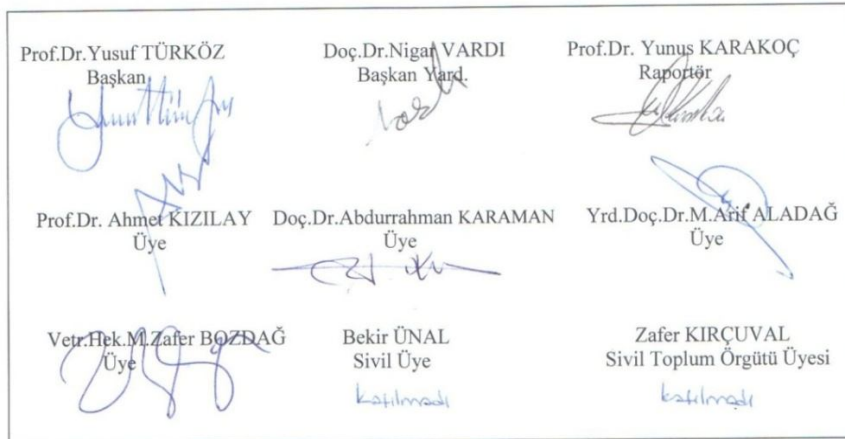 Prof.Dr.Yusuf TÜRKÖZ
Başkan
Doç.Dr.Nigar VARDI
Başkan Yard.
Prof.Dr. Yunus KARAKOÇ
Raportör
Prof.Dr. Ahmet KIZILAY
Üye
Doç.Dr.Abdurrahman KARAMAN
Üye
Yrd.Doç.Dr.M.Arif ALADAĞ
Üye
Vetr.Hek.M.Zafer BOZDAĞ
Üye
Bekir ÜNAL
Sivil Üye
Katılmadı
Zafer KIRÇUVAL
Sivil Toplum Örgütü Üyesi
Katılmadı